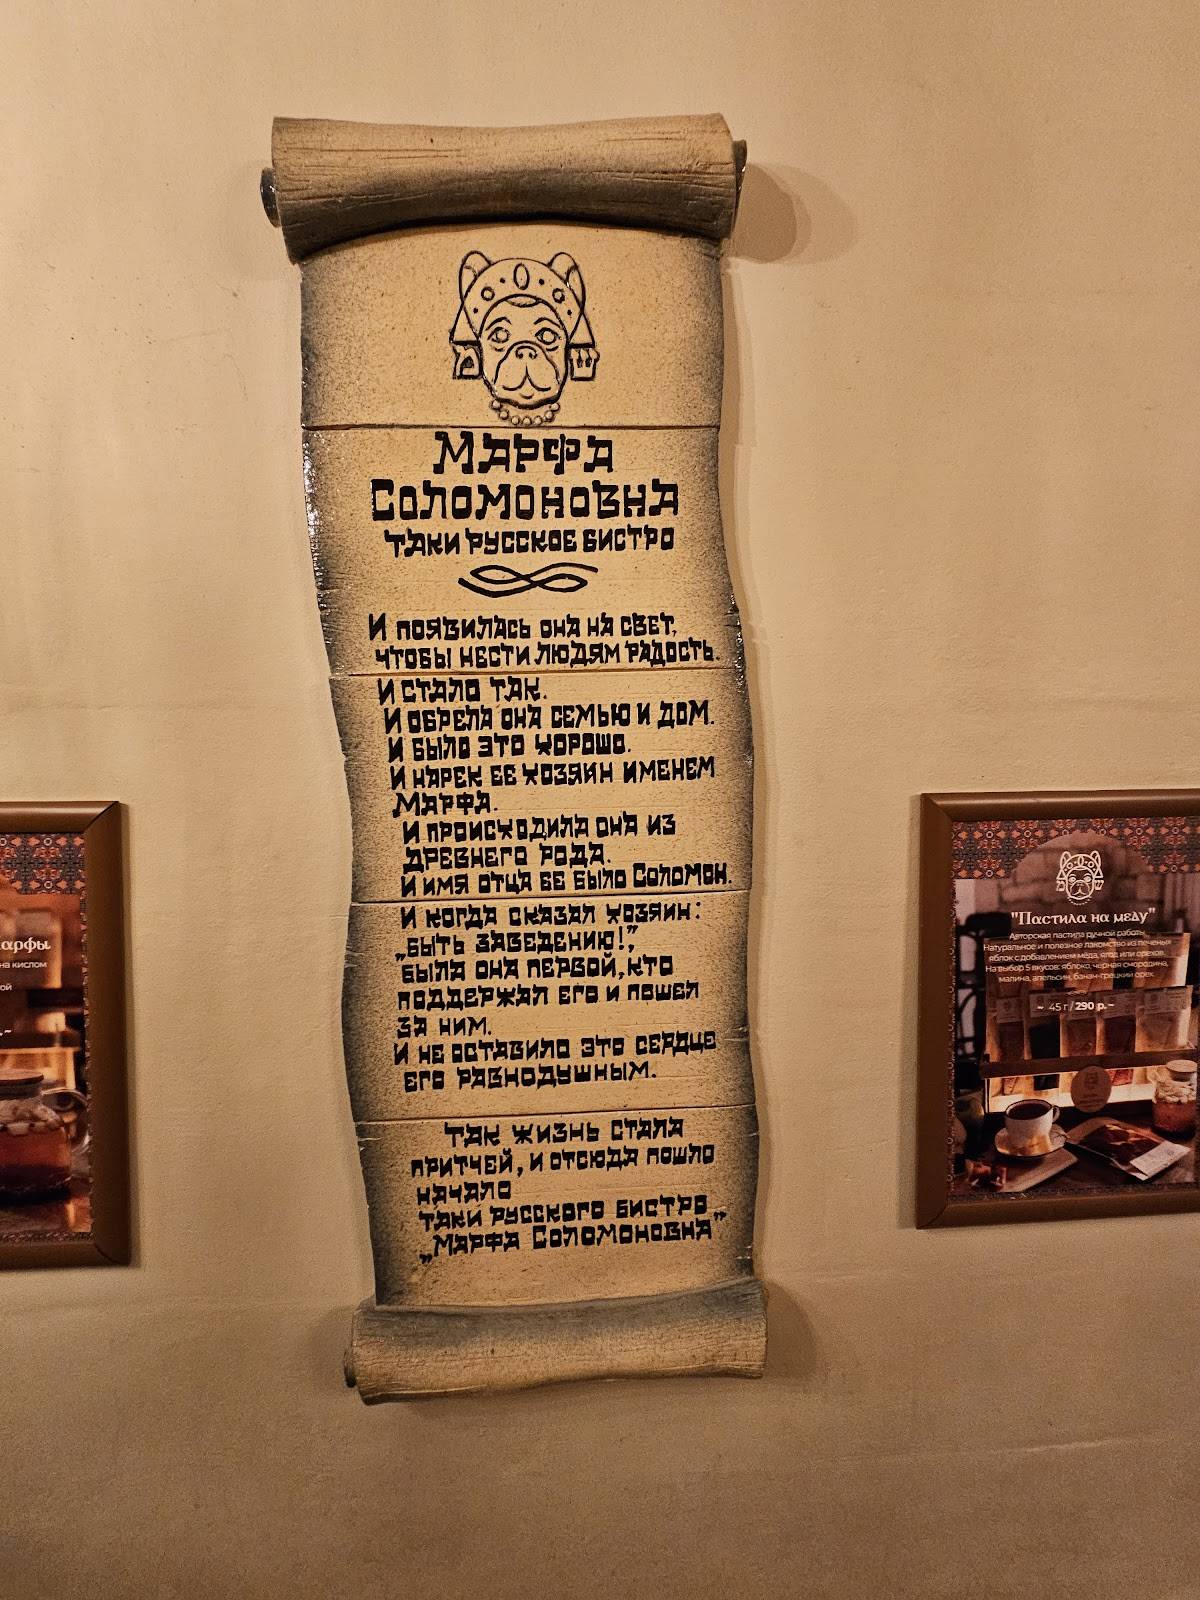 Марфа
Соломоновна
таки русское бистро
И появилась она на свет,
чтобы нести людям радость.
И стало так.
И обрела она семью и дом.
И было это хорошо.
И нарек ее хозяин именем
Марфа.
И происходила она из
древнего рода.
И имя отца ее было Соломон.
И когда сказал хозяин:
„Быть заведению!”,
была она первой, кто
поддержал его и пошел
за ним.
И не оставило это сердце
его равнодушным.
Так жизнь стала
притчей, и отсюда пошло
начало
таки русского бистро
„Марфа Соломоновна”
арфы
на кислом
ой
"Пастила на меду"
Авторская пастила ручной работы.
Натуральное и полезное лакомство из печеных
яблок с добавлением меда, ягод или орехов.
На выбор 5 вкусов: яблоко, черная смородина,
малина, апельсин, банан-грецкий орех.
~ 45 г / 290 р. ~